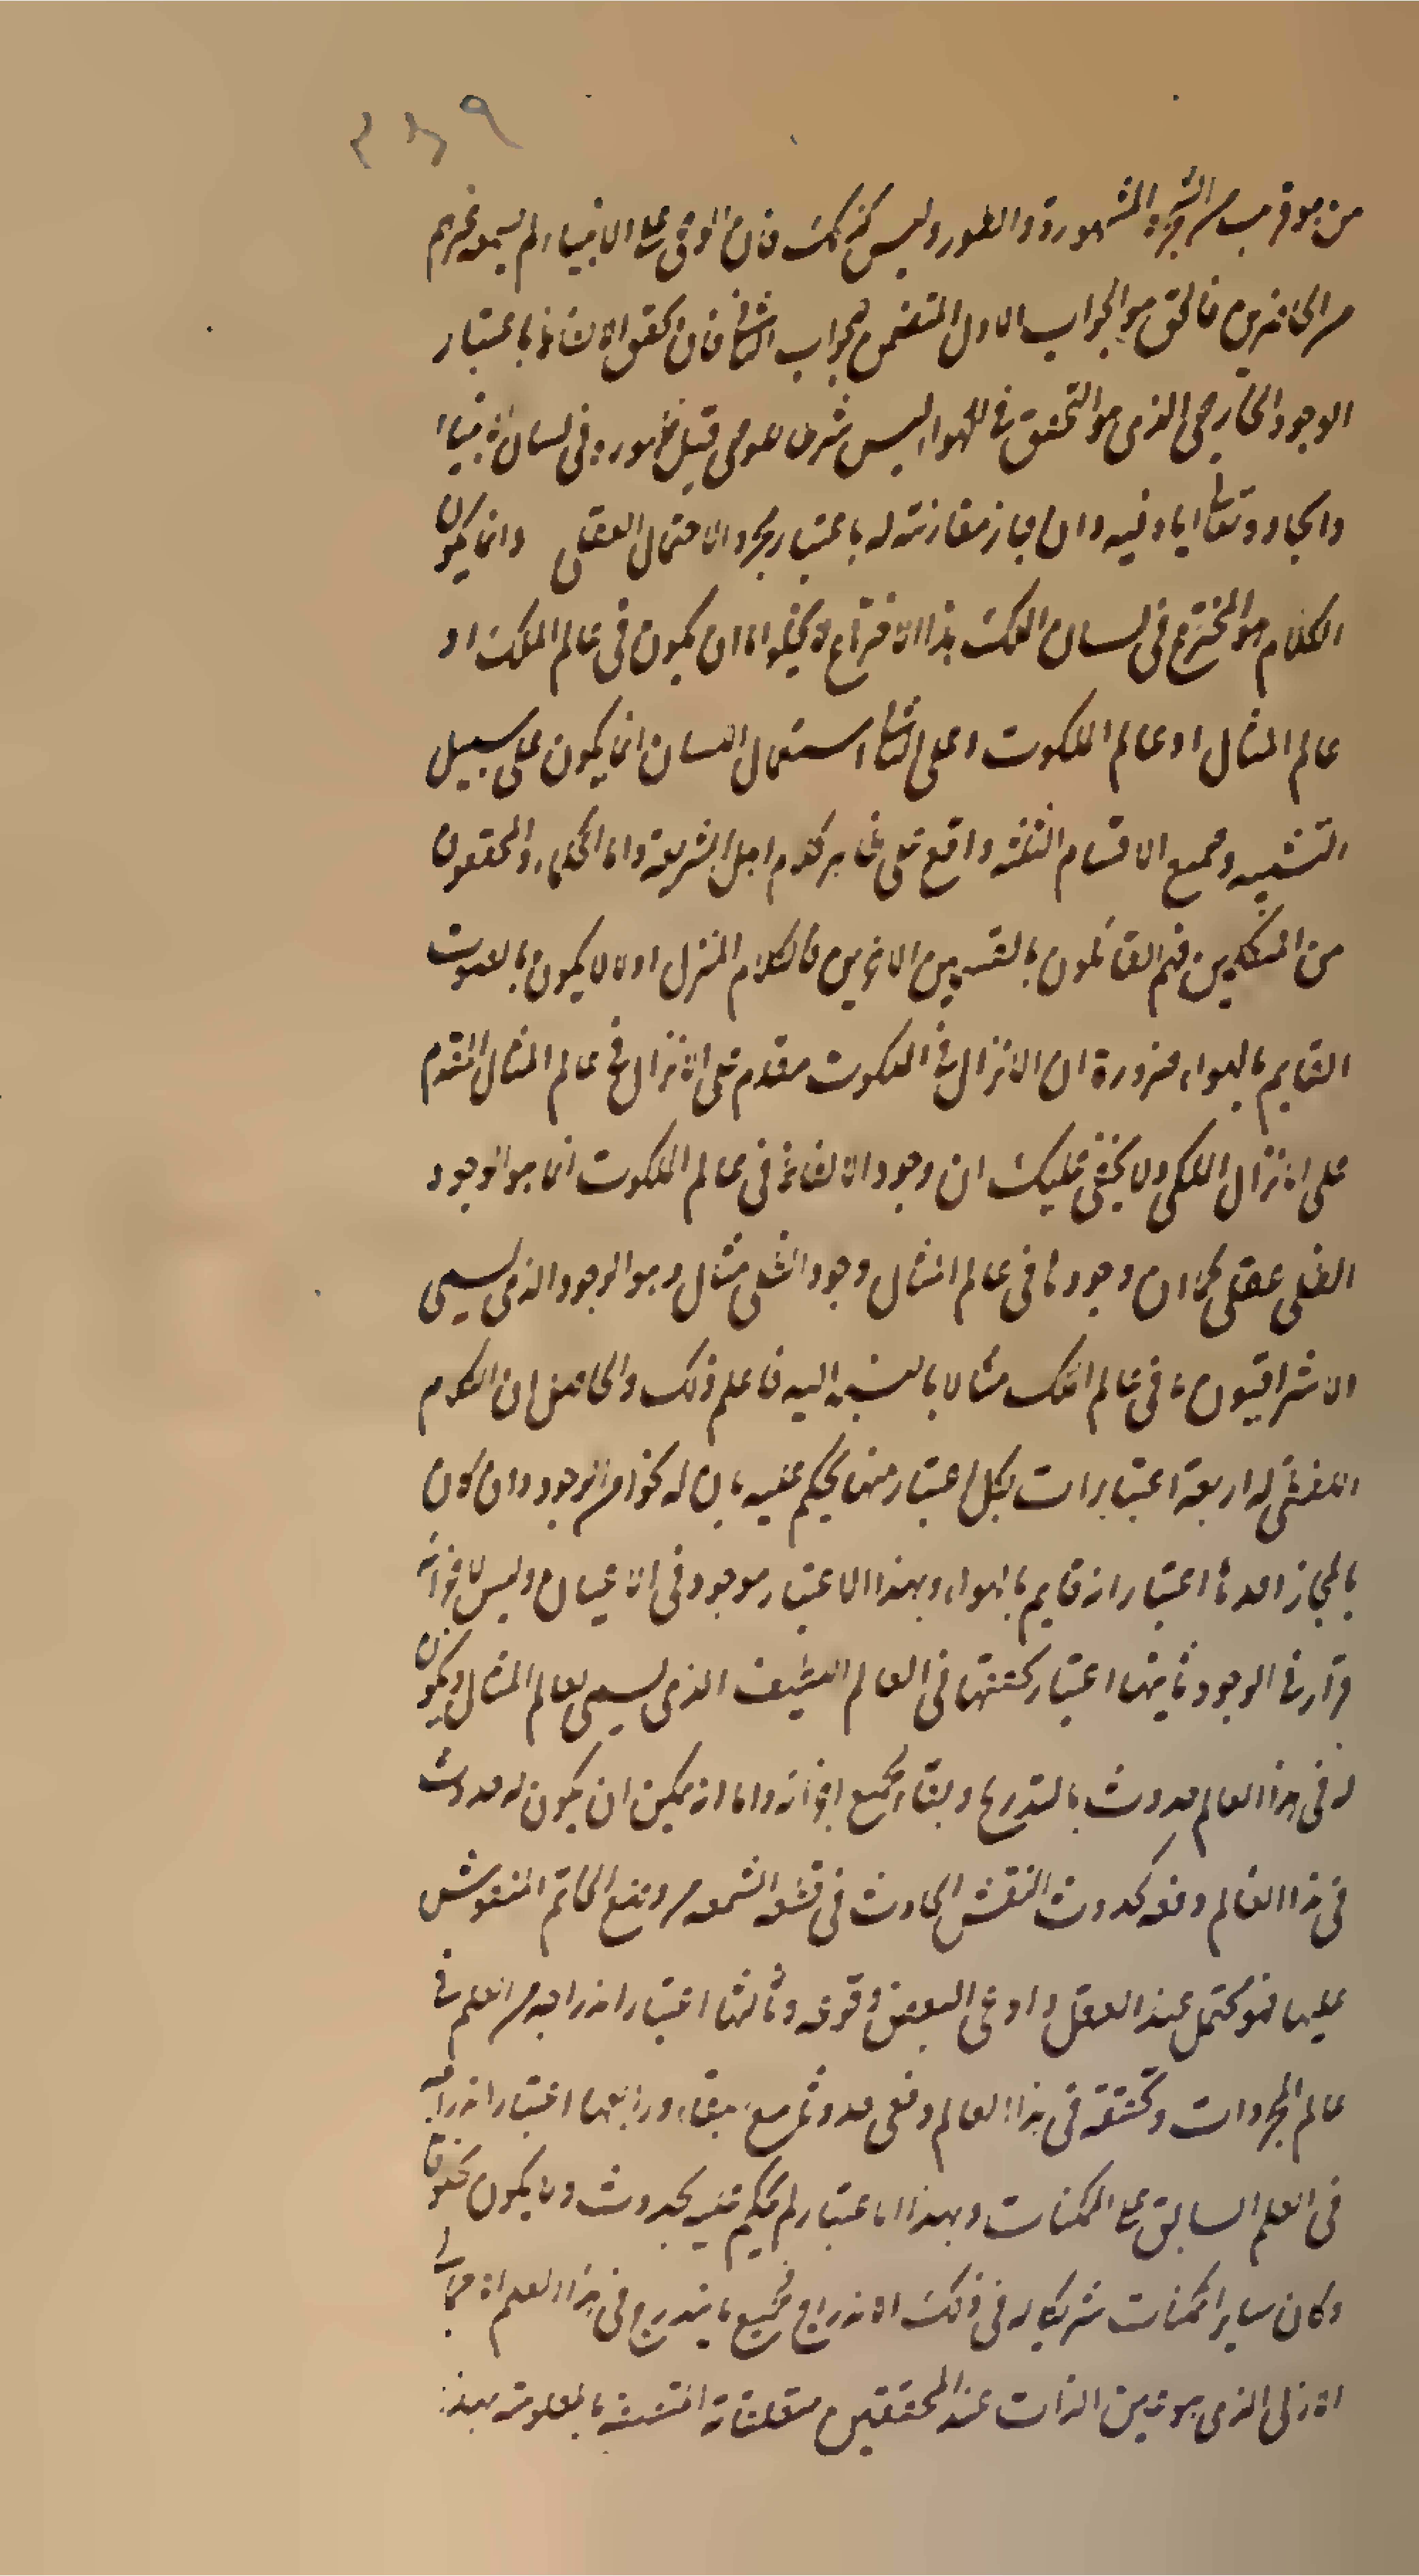 ٣٤٩
من هو قريب من الشجرة المشهورة والطور وليس كذلك فان الوحى على الانبياء لم يسمعه غيرهم
من الحاضرين فالحق هو الجواب الاول المتضمن لجواب الثانى فان تحقق الالفاظ باعتبار
الوجود الخارجى الذى هو التحقق فى الهواء ليس شرطا للوحى قبل ظهوره فى لسان الانبياء
وايجاده تعالى اياه فيه وان جاز مقارنته له باعتبار مجرد الاحتمال العقلى وانما يكون
الكلام هو المخترع فى لسان الملك هذا الاختراع لا يخلو اما ان يكون فى عالم الملك او
عالم المثال او عالم الملكوت وعلى الثانى استعمال اللسان انما يكون على سبيل
التشبيه وجميع الاقسام الثلثة واقع على ظاهر كلام اهل الشريعة واما الحكماء والمحققون
من المتكلمين فهم القائلون بالقسمين الاخيرين فالكلام المنزل اولا لا يكون بالصوت
القايم بالهواء ضرورة ان الانزال فى الملكوت مقدم على الانزال فى عالم المثال المتقدم
على الانزال الملكى ولا يخفى عليك ان وجود الالفاظ فى عالم الملكوت انما هو الوجود
العقلى كما ان وجودها فى عالم المثال وجود مثالى وهو الوجود الذى يسمى
الاشراقيون ما فى عالم الملك مثالا بالنسبة اليه فاعلم ذلك والحاصل ان الكلام
اللفظى له اربعة اعتبارات بكل اعتبار منها يحكم عليه بان له نحوا من الوجود وان كان
بالمجاز احدها اعتبار انه قايم بالهواء وبهذا الاعتبار موجود فى الاعيان وليس لاجزائه
قرار فى الوجود ثانيها اعتبار تحققها فى العالم اللطيف الذى يسمى بعالم المثال ويكون
له فى هذا العالم حدوث بالتدريج وبقاء لجميع اجزائه واما انه يمكن ان يكون له حدوث
فى هذا العالم دفعة كحدوث النقش الحادث فى قطعة الشمعة من وضع الخاتم المنقوش
عليها فهو محتمل عند العقل وادعى البعض وقوعه وثالثها اعتبار اندراجه من العلم فى
عالم المجردات وتحققه فى هذا العالم دفعى حدوثى مع بقاء ورابعها اعتبار اندراجه
فى العلم السابق على الممكنات وبهذا الاعتبار لم يحكم عليه بحدوث ولا يكون مخلوقا
وكان ساير الممكنات شريكا له فى ذلك الاندراج فجميع ما يندرج فى هذا العلم الاجمالى
الازلى الذى هو عين الذات عند المحققين متعلقاته المتشبثة بالمعلومة بهذا